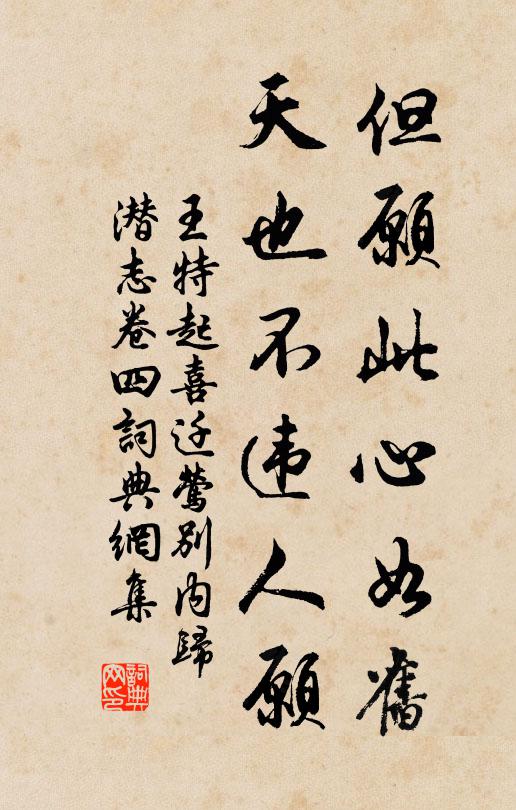 但願此心如舊
天也不违人願
王特起喜迁鶯別内歸
潜志卷四詞典網集
詞典网印